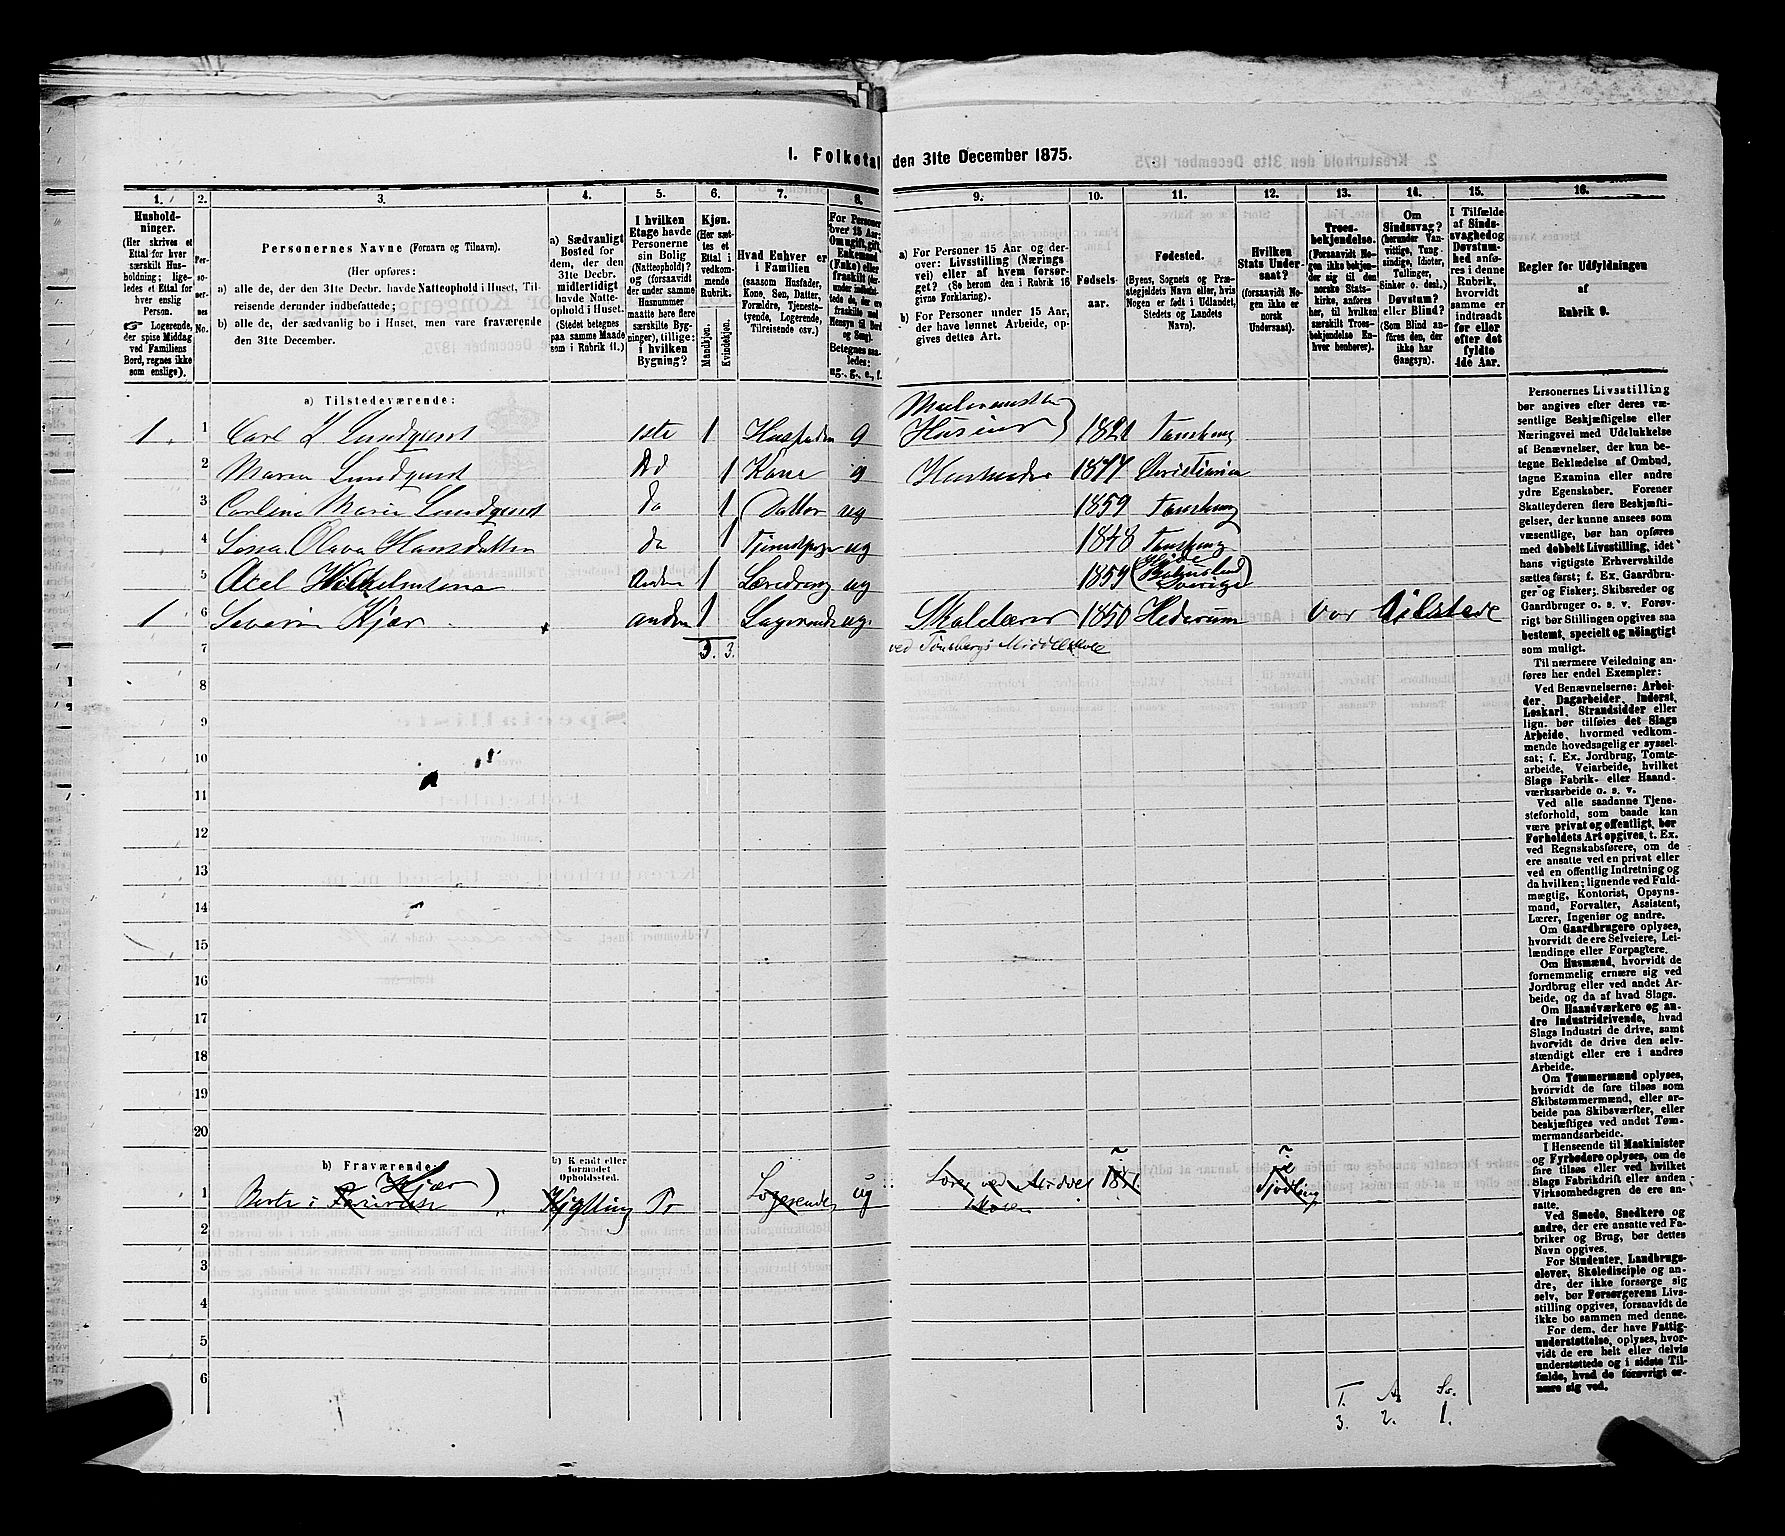 1. Folketal den 31te December 1875.
1. 2. 3. 4. 5. 6. 7. 8. 9. 10. 11. 12. 13. 14. 15. 16.
Hushold-
ninger.
(Her skrives et
Ettal for hver
særskilt Hus-
holdning; lige-
ledes et Ettal for
hver enslig
Person.
☞ Logerende,
der spise Middag
ved Familiens
Bord, regnes ikke
som enslige).
Per-
so-
ner-
nes
No.
Personernes Navne (Fornavn og Tilnavn).
(Her opføres:
a) alle de, der den 31te Decbr. havde Natteophold i Huset, Til-
reisende derunder indbefattede;
b) alle de, der sædvanlig bo i Huset, men vare fraværende
den 31te December.
a) Sædvanligt
Bosted for
dem, der den
31te Decbr.
midlertidigt
havde Natte-
ophold i Huset.
(Stedet betegnes
paa samme Maade
som i Rubrik 11.)
I hvilken
Etage havde
Personerne
sin Bolig
(Natteophold)?
(forsaavidt
der under samme
Husnummer
maatte høre flere
særskilte Byg-
ninger), tillige:
i hvilken
Bygning?
Kjøn.
(Her sæt-
tes et
Ettal i
vedkom-
mende
Rubrik.
Mandkjøn.
Kvindekjøn.
Hvad Enhver er
i Familien
(saasom Husfader,
Kone, Søn, Datter,
Forældre, Tjeneste-
tyende, Logerende,
Tilreisende osv.)
For Personer
over 15 Aar:
Om ugift, gift,
Enkemand
(Enke) eller
fraskilt
Betegnes saa-
ledes:
ug., g., e., f.
a) For Personer 15 Aar og der-
over: Livsstilling (Nærings
vei) eller af hvem forsør-
get? (Se herom den i Rubrik 16
givne Forklaring).
b) For Personer under 15 Aar,
der have lønnet Arbeide, op-
gives dettes Art.
Fødsels-
aar.
Fødested.
(Byens, Sognets og Præ-
stegjeldets Navn eller, hvis
Nogen er født i Udlandet,
Stedets og Landets
Navn).
Hvilken
Stats Under-
saat?
(forsaavidt No-
gen ikke er
norsk
Undersaat).
Troes-
bekjendelse.
(Forsaavidt No-
gen ikke bekjen-
der sig til den
norske Stats-
kirke, anføres
her, til hvilken
særskilt Troes-
bekjendelse En-
hver henhører).
Om
Sindssvag?
(herunder Van-
vittige, Tung-
sindige, Idioter,
Tullinger,
Sinker o. desl.)
Døvstum?
eller Blind?
(Som Blind an-
føres den, der
ikke har
Gangsyn).
I Tilfælde
af Sinds-
svaghed og
Døvstum-
hed anfø-
res i denne
Rubrik,
hvorvidt
samme er
indtraadt
før eller
efter det
fyldte
4de Aar.
Regler for Udfyldningen
af
Rubrik 9.
a) Tilstedeværende:
1 1 Carl L. Lundqvist 1ste 1 Husfader g Huseier 1821 Tønsberg
2 Maria Lundqvist Do 1 Kone g 1877 Christiania
3 Carline Marie Lundqvist do 1 Datter ug 1859 Tønsberg
4 Lina Olava Hansdatter do 1 ug 1848 Tønsberg
5 Axel Wilhelmsen Anden 1 Læredreng ug 1859 Sverige
1 6 Severin Kjær anden 1 Logerende ug. Skolelærer 1850
7 3. 3. ved Tønsbergs Middelskole
8
9
10
11
12
13
14
15
16
17
18
19
20
b) Fraværende:
b) Kjendt eller
formodet
Opholdssted.
1 Kjær Logerende ug
2
3
4
5
6
T. A. Sv.
3. 2. 1.
Personernes Livsstilling
bør angives efter deres væ-
sentlige Beskjæftigelse eller
Næringsvei med Udelukkelse
af Benævnelser, der kun be-
tegne Beklædelse af Ombud,
tagne Examina eller andre
ydre Egenskaber. Forener
Skatteyderen flere Beskjæfti-
gelser, der kunne ansees som
væsentlige, bør han opføres
med dobbelt Livsstilling, idet
hans vigtigste Erhvervskilde
sættes først; f. Ex. Gaardbru-
ger og Fisker; Skibsreder og
Gaardbruger o. s. v. Forøv-
rigt bør Stillingen opgives saa
bestemt, specielt og nøiagtigt
som muligt.
Til nærmere Veiledning an-
føres her endel Exempler:
Ved Benævnelserne: Arbei-
der, Dagarbeider, Inderst,
Løskarl, Strandsidder eller
lign. bør tilføies det Slags
Arbeide, hvormed vedkom-
mende hovedsagelig er syssel-
sat; f. Ex. Jordbrug, Tomte-
arbeide, Veiarbeide, hvilket
Slags Fabrik- eller Haand-
værksarbeide o. s. v.
Ved alle saadanne Tjene-
steforhold, som baade kan
være privat og offentligt, bør
Forholdets Art opgives, t. Ex.
ved Regnskabsførere, om de
ere ansatte ved en privat eller
ved en offentlig Indretning og
da hvilken; lignende ved Fuld-
mægtig, Kontorist, Opsyns-
mand, Forvalter, Assistent,
Lærer, Ingeniør og andre.
Om Gaardbrugere oplyses,
hvorvidt de ere Selveiere, Lei-
lændinge eller Forpagtere.
Om Husmænd, hvorvidt de
fornemmelig ernære sig ved
Jordbrug eller ved andet Ar-
beide, og da af hvad Slags.
Om Haandværkere og an-
dre Industridrivende, hvad
Slags Industri de drive, samt
hvorvidt de drive den selv-
stændigt eller ere i andres
Arbeide.
Om Tømmermænd oplyses,
hvorvidt de fare tilsøs som
Skibstømmermænd, eller ar-
beide paa Skibsværfter, eller
beskjæftiges ved andet Tøm-
mermandsarbeide.
I Henseende til Maskinister
og Fyrbødere oplyses, om de
fare tilsøs eller ved hvilket
Slags Fabrikdrift eller anden
Virksomhedsgren de ere an-
satte.
Ved Smede, Snedkere og
andre, der ere ansatte ved Fa-
briker og Brug, bør dettes
Navn opgives.
For Studenter, Landbrugs-
elever, Skoledisciple og an-
dre, der ikke forsørge sig
selv, bør Forsørgerens Livs-
stilling opgives, forsaavidt de
ikke bo sammen med denne.
For dem, der have Fattig-
understøttelse, oplyses, hvor-
vidt de ere helt eller delvis
understøttede og i sidste Til-
fælde, hvad de forøvrigt er-
nære sig ved.